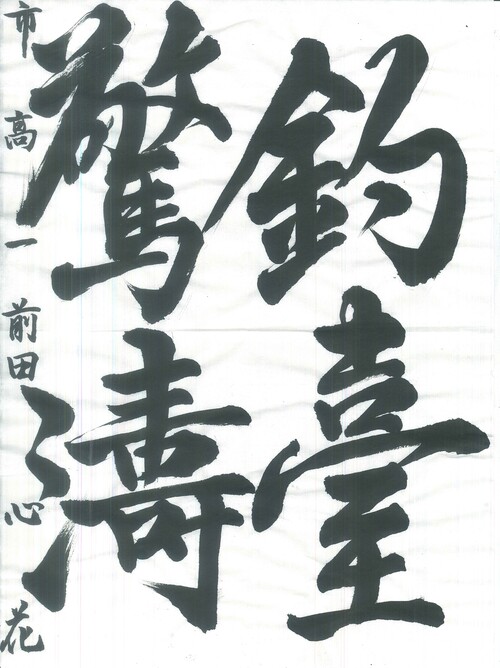 釣臺
驚濤
市高一前田心花